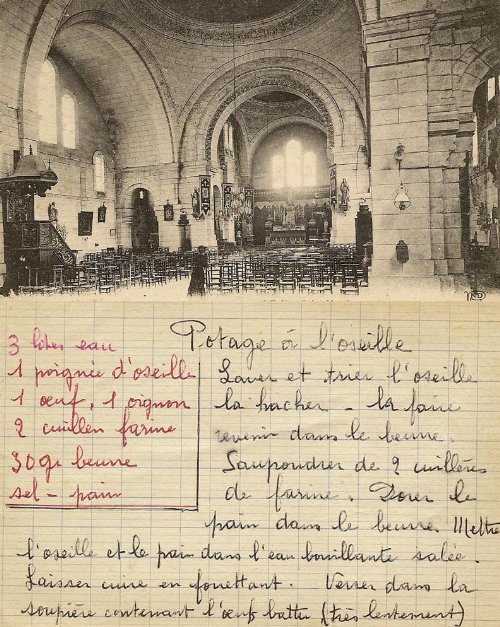 ND
Potage à l'oseille
3 lites eau
1 poignée d'oseille
1 œuf, 1 oignon
2 cuillers farine
30gr beurre
sel - pain
Laver et trier l'oseille
la hacher - la faire
revenir dans le beurre.
Saupoudrer de 2 cuillères
de farine. Dorer le
pain dans le beurre. Mettre
l'oseille et le pain dans l'eau bouillante salée.
Laisser cuire en fouettant. Verser dans la
soupière contenant l'œuf battu (très lentement)